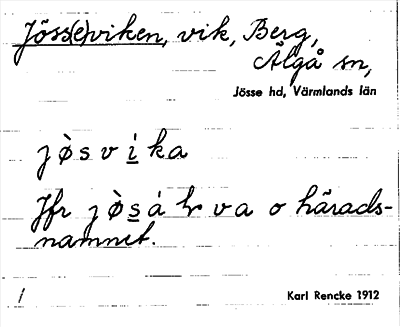 Jöss(e)viken, vik, Berg,
Älgå sn,
Jösse hd, Värmlands län
jø̀svi̲ka
Jfr jø̀s̲a va o härads-
namnet.
/
Karl Rencke 1912